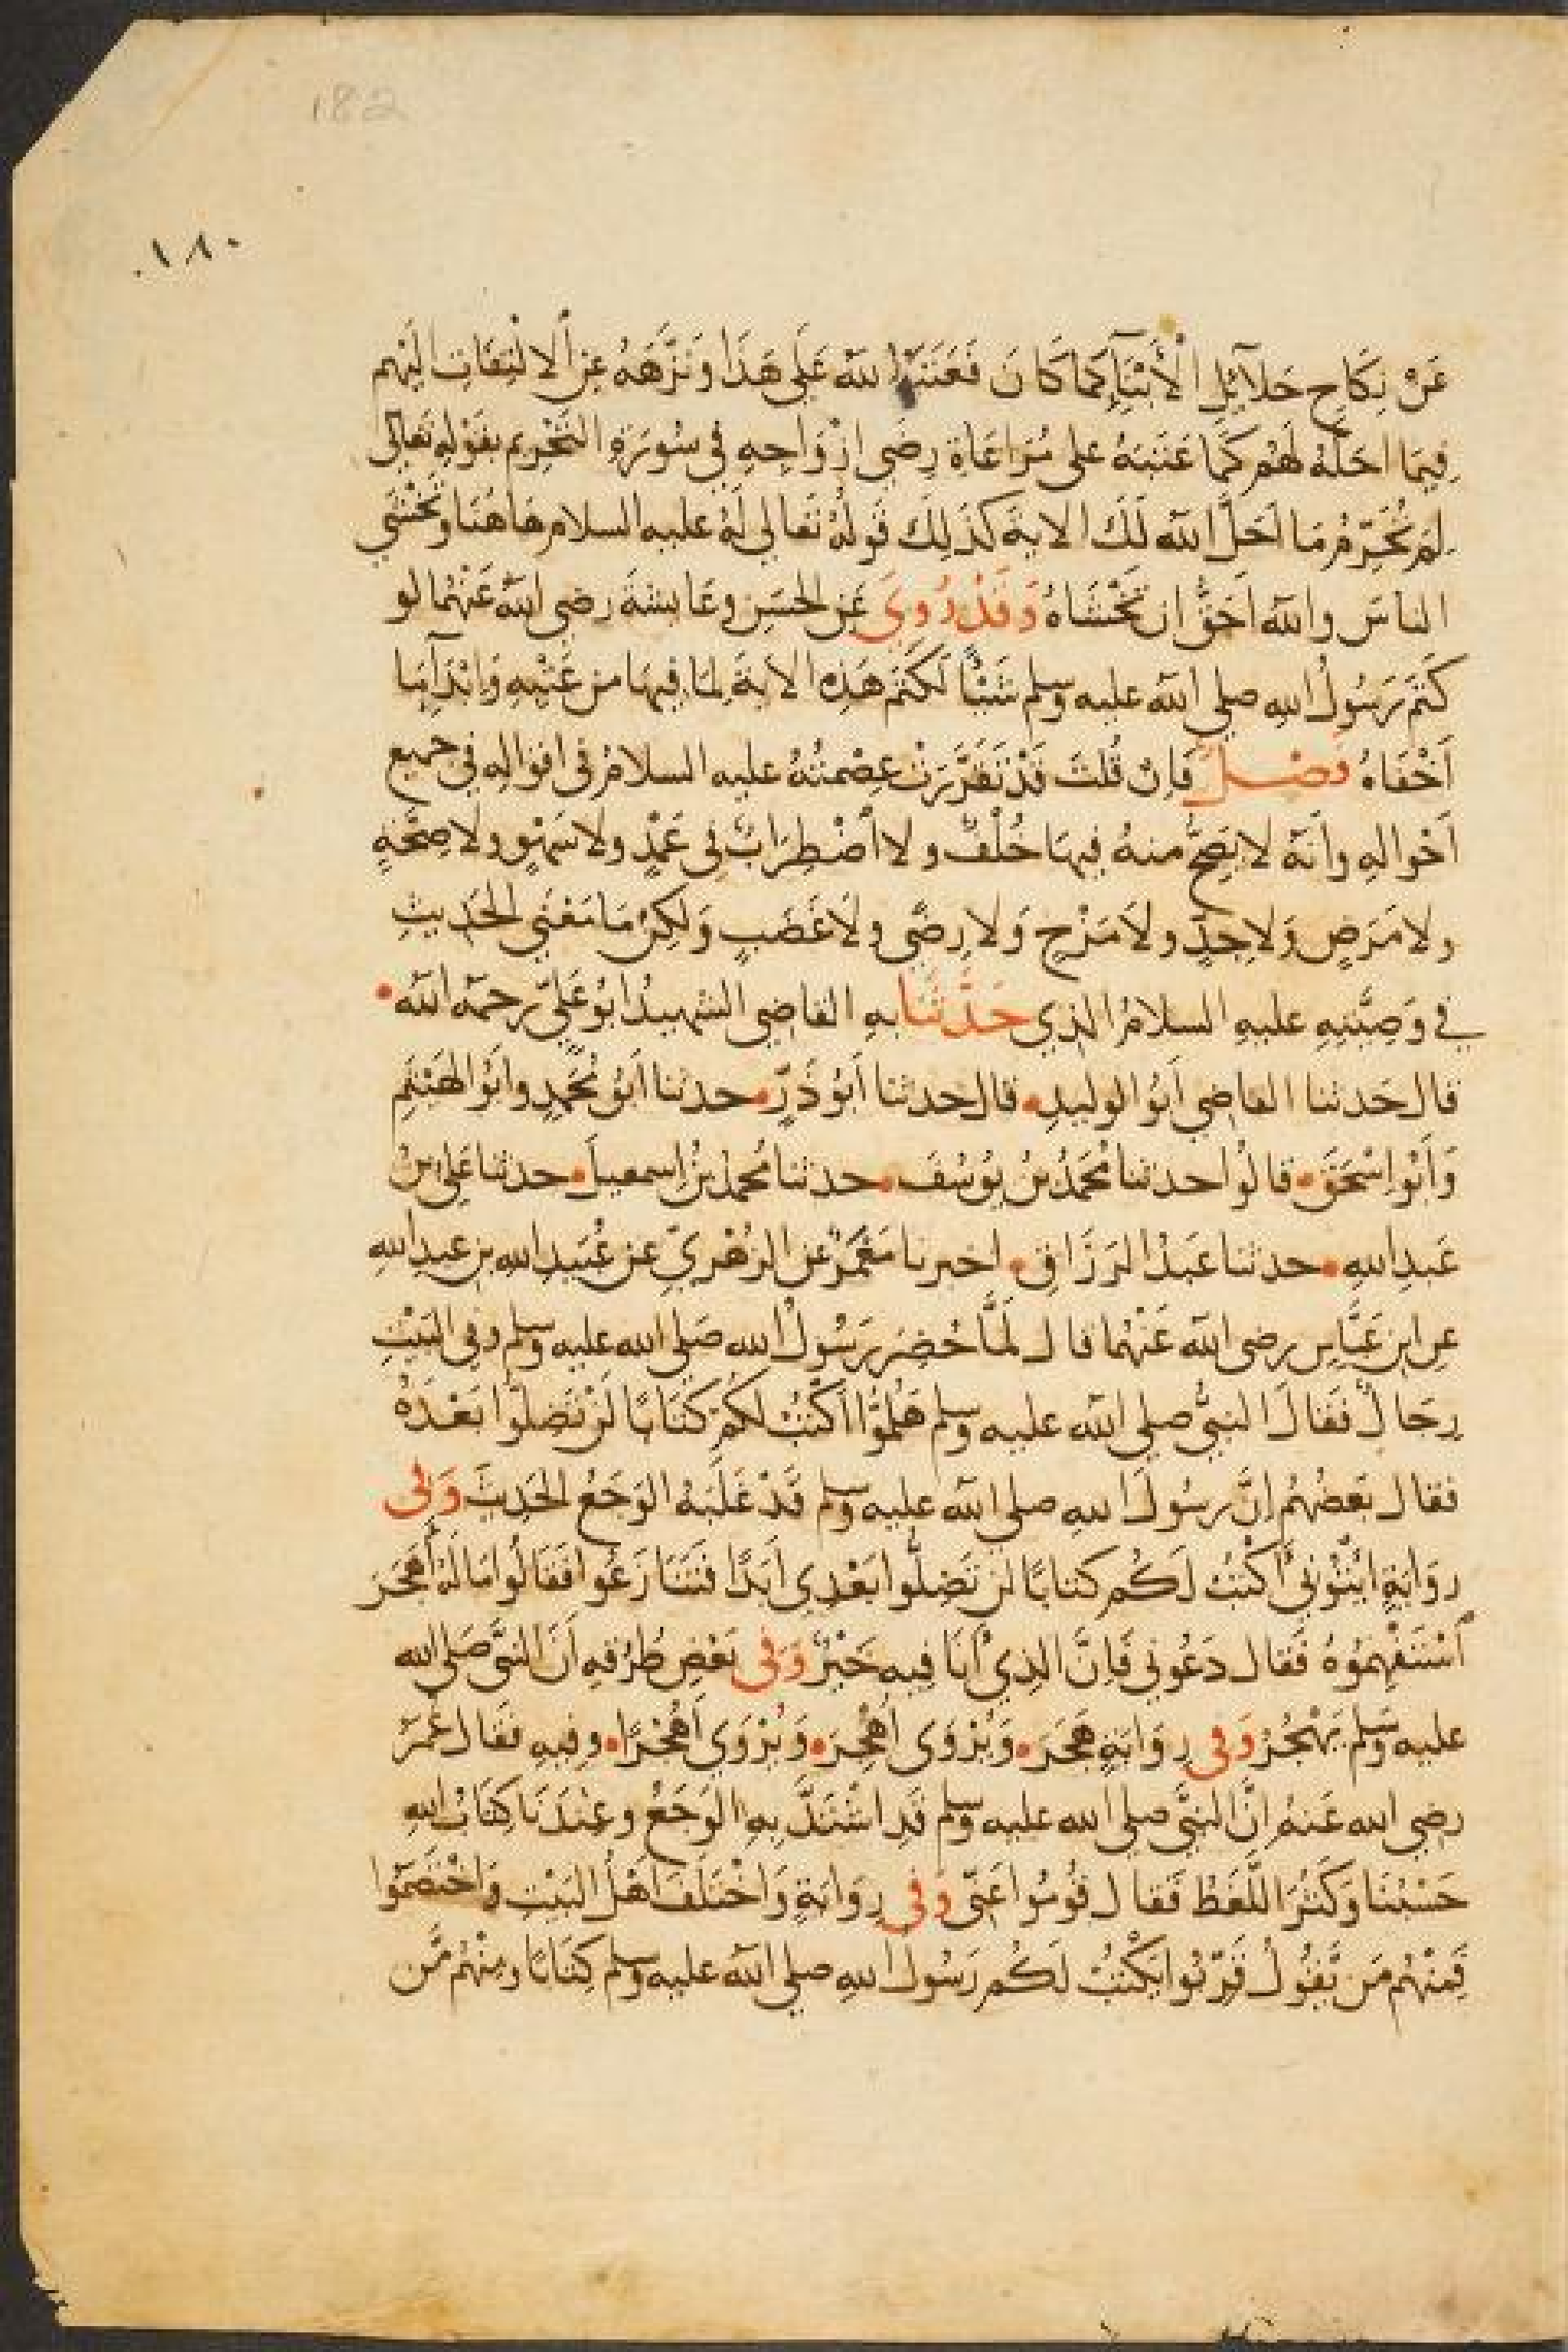 182
١٨٠
عَنْ نِكَاحِ حَلَآئِلِ الْأَبْنَآءِ كَمَا كَانَ فَعَتَبَهُ اللّه عَلَى هَذَا وَنَزَّهَهُ عن الالتِفَاتِ اليْهم
فِيمَا احَلَّهُ لَهُم كَمَا عَتَبَهُ على مُرَاعَاةِ رِضَى ازْوَاجِهِ في سُورَةِ التَّحْرِيم بقَوْلِهِ تَعالى
لِمَ تُحَرِّمُ مَا اَحَلَّ اللّه لَكَ الاية كَذَلِكَ قَولُهُ تَعَالى لَهُ عليه السلام هَاهُنَا وَتَخْشَى
الناسَ والله اَحَقّ ان تَخْشَاهُ وَقَدْ رُوِيَ عَنِ الحَسَنِ وعَايشةَ رضى الله عَنْهُما لو
كَتَمَ رَسُولُ اللهِ صلى الله عليه وسلم شَيْئًا لَكَتَمَ هَذِهِ الاية لِمَا فِيهَا من عَتْبِهِ وَابْدَآءِ مَا
اَخْفَاهُ فَصْلٌ فَاِنْ قُلتَ قَدْ تَقَرَّرَتْ عِصْمَتُهُ عليه السلامُ فى اقوَالِه فى جميع
اَحْوالِهِ واَنّهُ لا يَصِحُّ منهُ فِيهَا خُلْفٌ ولا اضْطِرَابٌ فى عَمْدٍ ولا سَهْوٍ ولا صِحَّةٍ
ولا مَرَضٍ وَلا جِدٍّ ولا مَزْحٍ وَلا رِضًى ولَا غَضَبٍ وَلَكِنْ مَا مَعْنَى الحَدِيثِ
في وَصِيَّتِهِ عليهِ السلامُ الذي حَدَّثَنَا بهِ القاضِي الشهيدُ ابُو عَلِيّ رحمَه الله
قال حَدثنا القاضي اَبُو الوليدِ قال حدثنا اَبُو ذَرٍّ حدثنا اَبُو مُحَمدٍ وابَوُ الهَيْثَمِ
وَاَبُو اسْحَقَ قالُوا حدثنا مُحَمدُ بنُ يُوسُفَ حدثنا مُحمدُ بنُ اِسمعيلَ حدثنا عَلى بنُ
عَبدِ اللهِ حدثنا عَبدُ الرَزَاقِ اخبرنا مَعْمَرٌ عن الزُهْرِيّ عن عُبَيدِ اللهِ بن عبدِ اللهِ
عنِ ابنِ عَبَّاسٍ رضى الله عَنْهُما قال لَمَّا حُضِرَ رَسُولُ الله صَلى الله عليه وسلم وفى البَيْتِ
رِجَالٌ فَقالَ النبىُّ صلى الله عليه وسلم هَلُمُّوا اَكْتُبُ لَكُمْ كتَابًا لَنْ تَضِلُّوا بَعْدَهُ
فقال بَعضُهُم اِنَّ رسُولَ اللهِ صلى الله عليه وسلم قَدْ غَلَبَهُ الوَجَعُ الحَديثَ وَفِى
رِوَايَةٍ ايتُونِى اَكْتُبُ لَكُم كتابًا لن تَضِلُّوا بَعْدِى اَبَدًا فَتَنَازَعُوا فَقَالُوا مَا لَهُ اَهَجَرَ
اسْتَفْهِمُوهُ فَقال دَعُونى فَاِنَّ الذِي اَنَا فِيهِ خَيْرٌ وَفى بَعْضِ طُرُقِهِ اَنّ النبىَّ صَلى الله
عليه وسَلم يَهْجُرُ وَفى رِوَايَةٍ هَجَرَ وَيُرْوَى اَهُجْرٌ وَيُرْوَى اَهُجْرًا وفِيهِ فَقال عُمَرُ
رضى الله عَنهُ اِنَّ النبىَّ صلى الله عليه وسلم قَدِ اشْتَدَّ بِهِ الوَجَعُ وعِنْدَنَا كِتَابُ اللهِ
حَسْبُنَا وَكَثُرَ اللَّغَطُ فَقال قُومُوا عَنّى وَفى رِوَايَةٍ وَاخْتَلَفَ اَهْلُ البَيْتِ وَاخْتَصَمُوا
فَمِنْهُم مَن يَّقُولُ قَرِّبُوا يَكْتُبْ لَكُم رَسُولُ اللهِ صلى الله عليه وسلم كِتَابًا ومِنْهُم مَّن